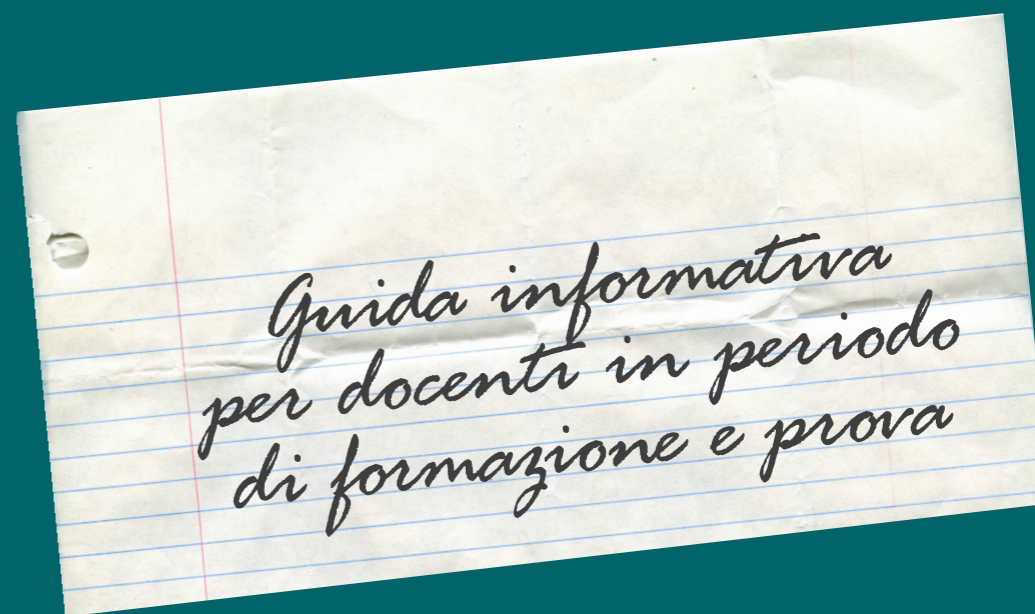 Guida informativa
per docenti in periodo
di formazione e prova